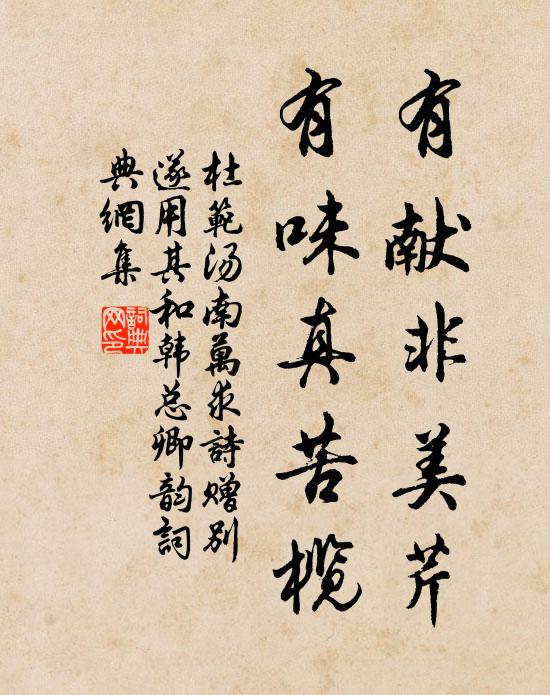 有献非美芹
有味真苦榄
杜範汤南萬求詩赠别
遂用其和韩总卿韵詞
典網集
詞典网印